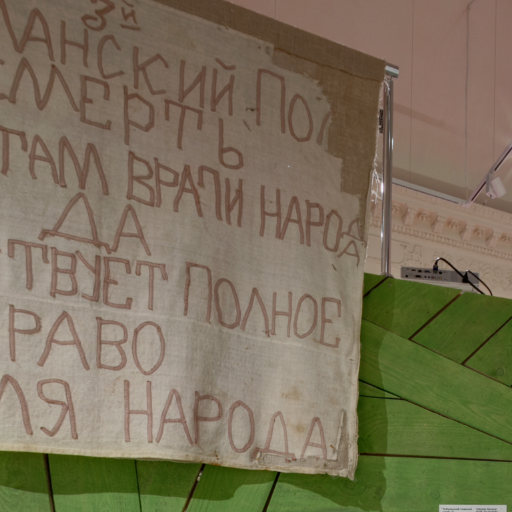 3й
ЛАНСКИЙ ПОЛ
СМЕРТЬ
ТАМ ВРАГИ НАРОДА
ДА
СТВУЕТ ПОЛНОЕ
РАВО
ЛЯ НАРОДА!